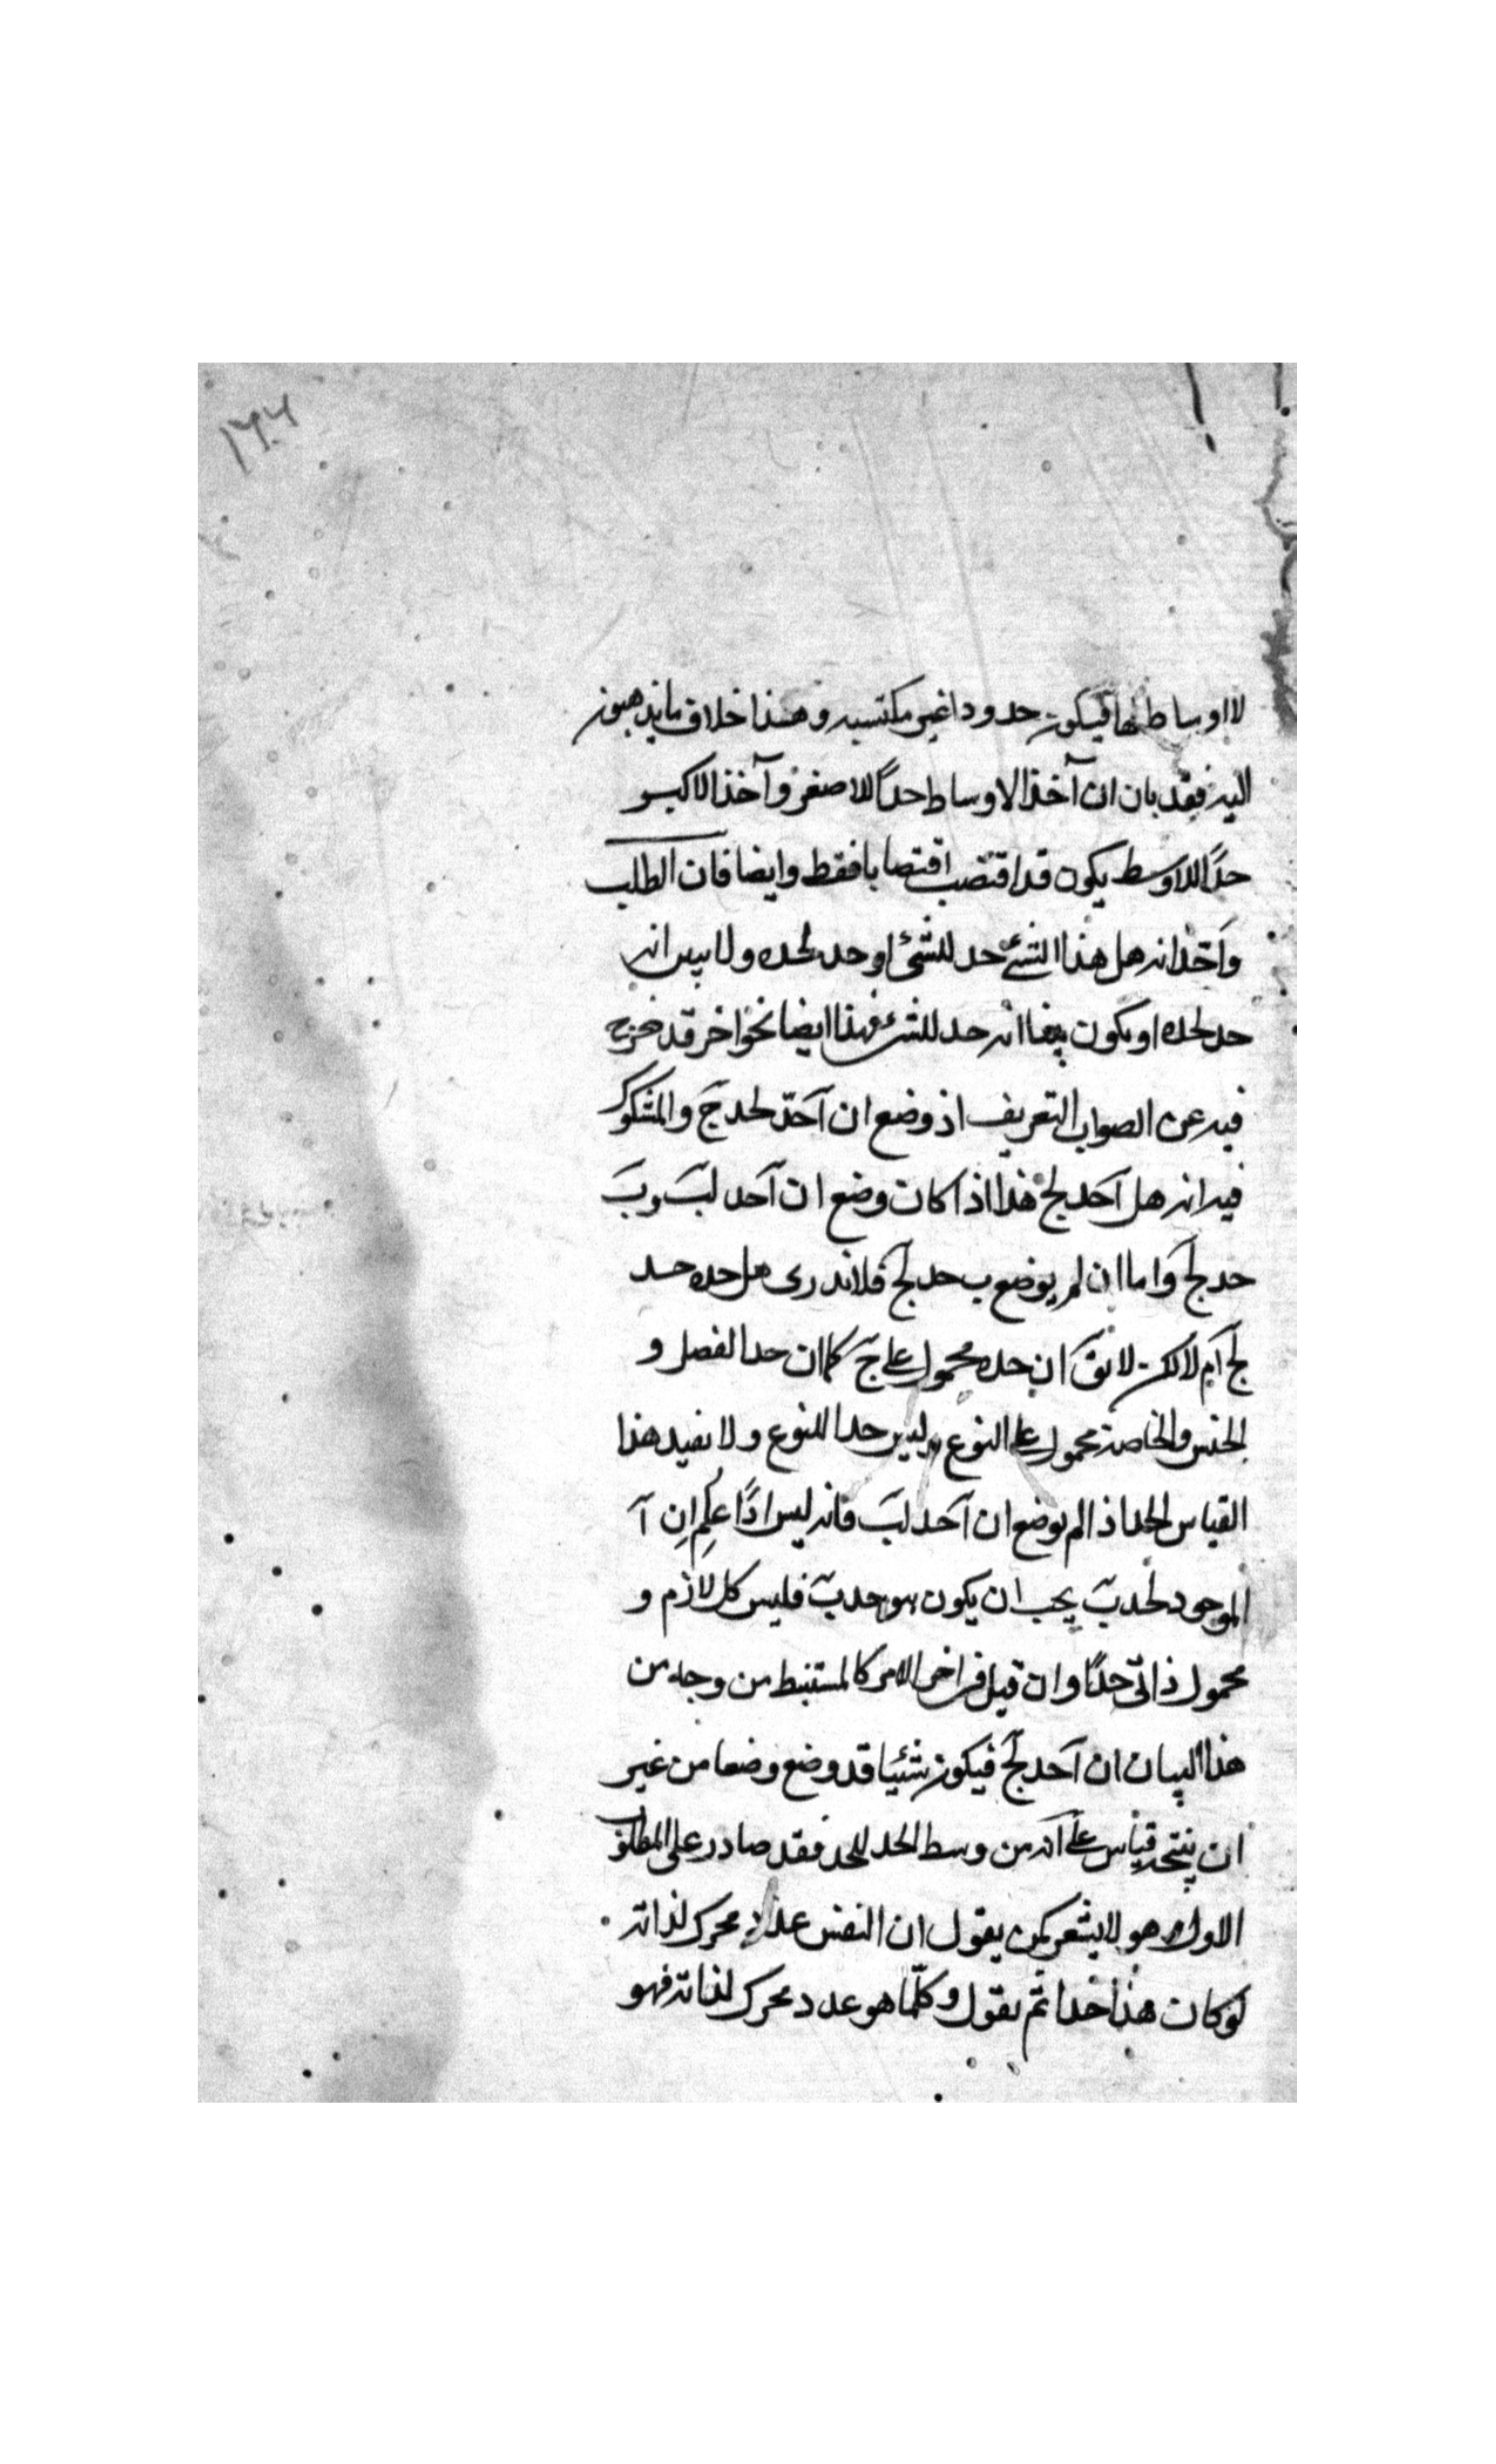 ١٢٠٢
لا اوساط لها فيكون حدودا غير مكتسبه وهذا خلاف ما يذهبون
اليه فقد بان ان آخذ الاوساط حداً للاصغر وآخذ الاكبر
حدًا للاوسط يكون قد اقتضب اقتضابا فقط وايضا فان الطلب
واحد انه هل هذا الشئ حد للشئ او حد لحده ولا يبين انه
حد لحده او يكون بينا انه حد للشئ فهذا ايضا نحو اخر قد خرج
فيه عن الصواب التعريف اذ وضع ان آ حدّ لحد جَ والمشكوك
فيه انه هل آ حد لج هذا اذا كان وضع ان آ حد لبَ وبَ
حد لجَ واما ان لم يوضع ب حد لجَ فلا ندرى هل حده حد
لجَ ام لا لكن لا يقَ ان حده محمول على جَ كما ان حد الفصل و
الجنس والخاصة محمول على النوع وليس حدا للنوع ولا يفيد هذا
القياس الحد اذ لم يوضع ان آ حد لبَ فانه ليس اذًا عُلِم انِ آ
الموجود لحد بَ يجب ان يكون هو حد بَ فليس كل لازم و
محمول ذاتى حدًا وان قيل فى اخر الامر كالمستنبط من وجه من
هذا البيان ان آ حد لجَ فيكون شيئا قد وضع وضعا من غير
ان ينتجه قياس على انه من وسط الحد للحد فقد صادر على المطلوب
الاول وهو لا يشعر كمن يقول ان النفس عدد محرك لذاته
لو كان هذا حدا ثم يقول وكلّما هو عدد محرك لذاته فهو